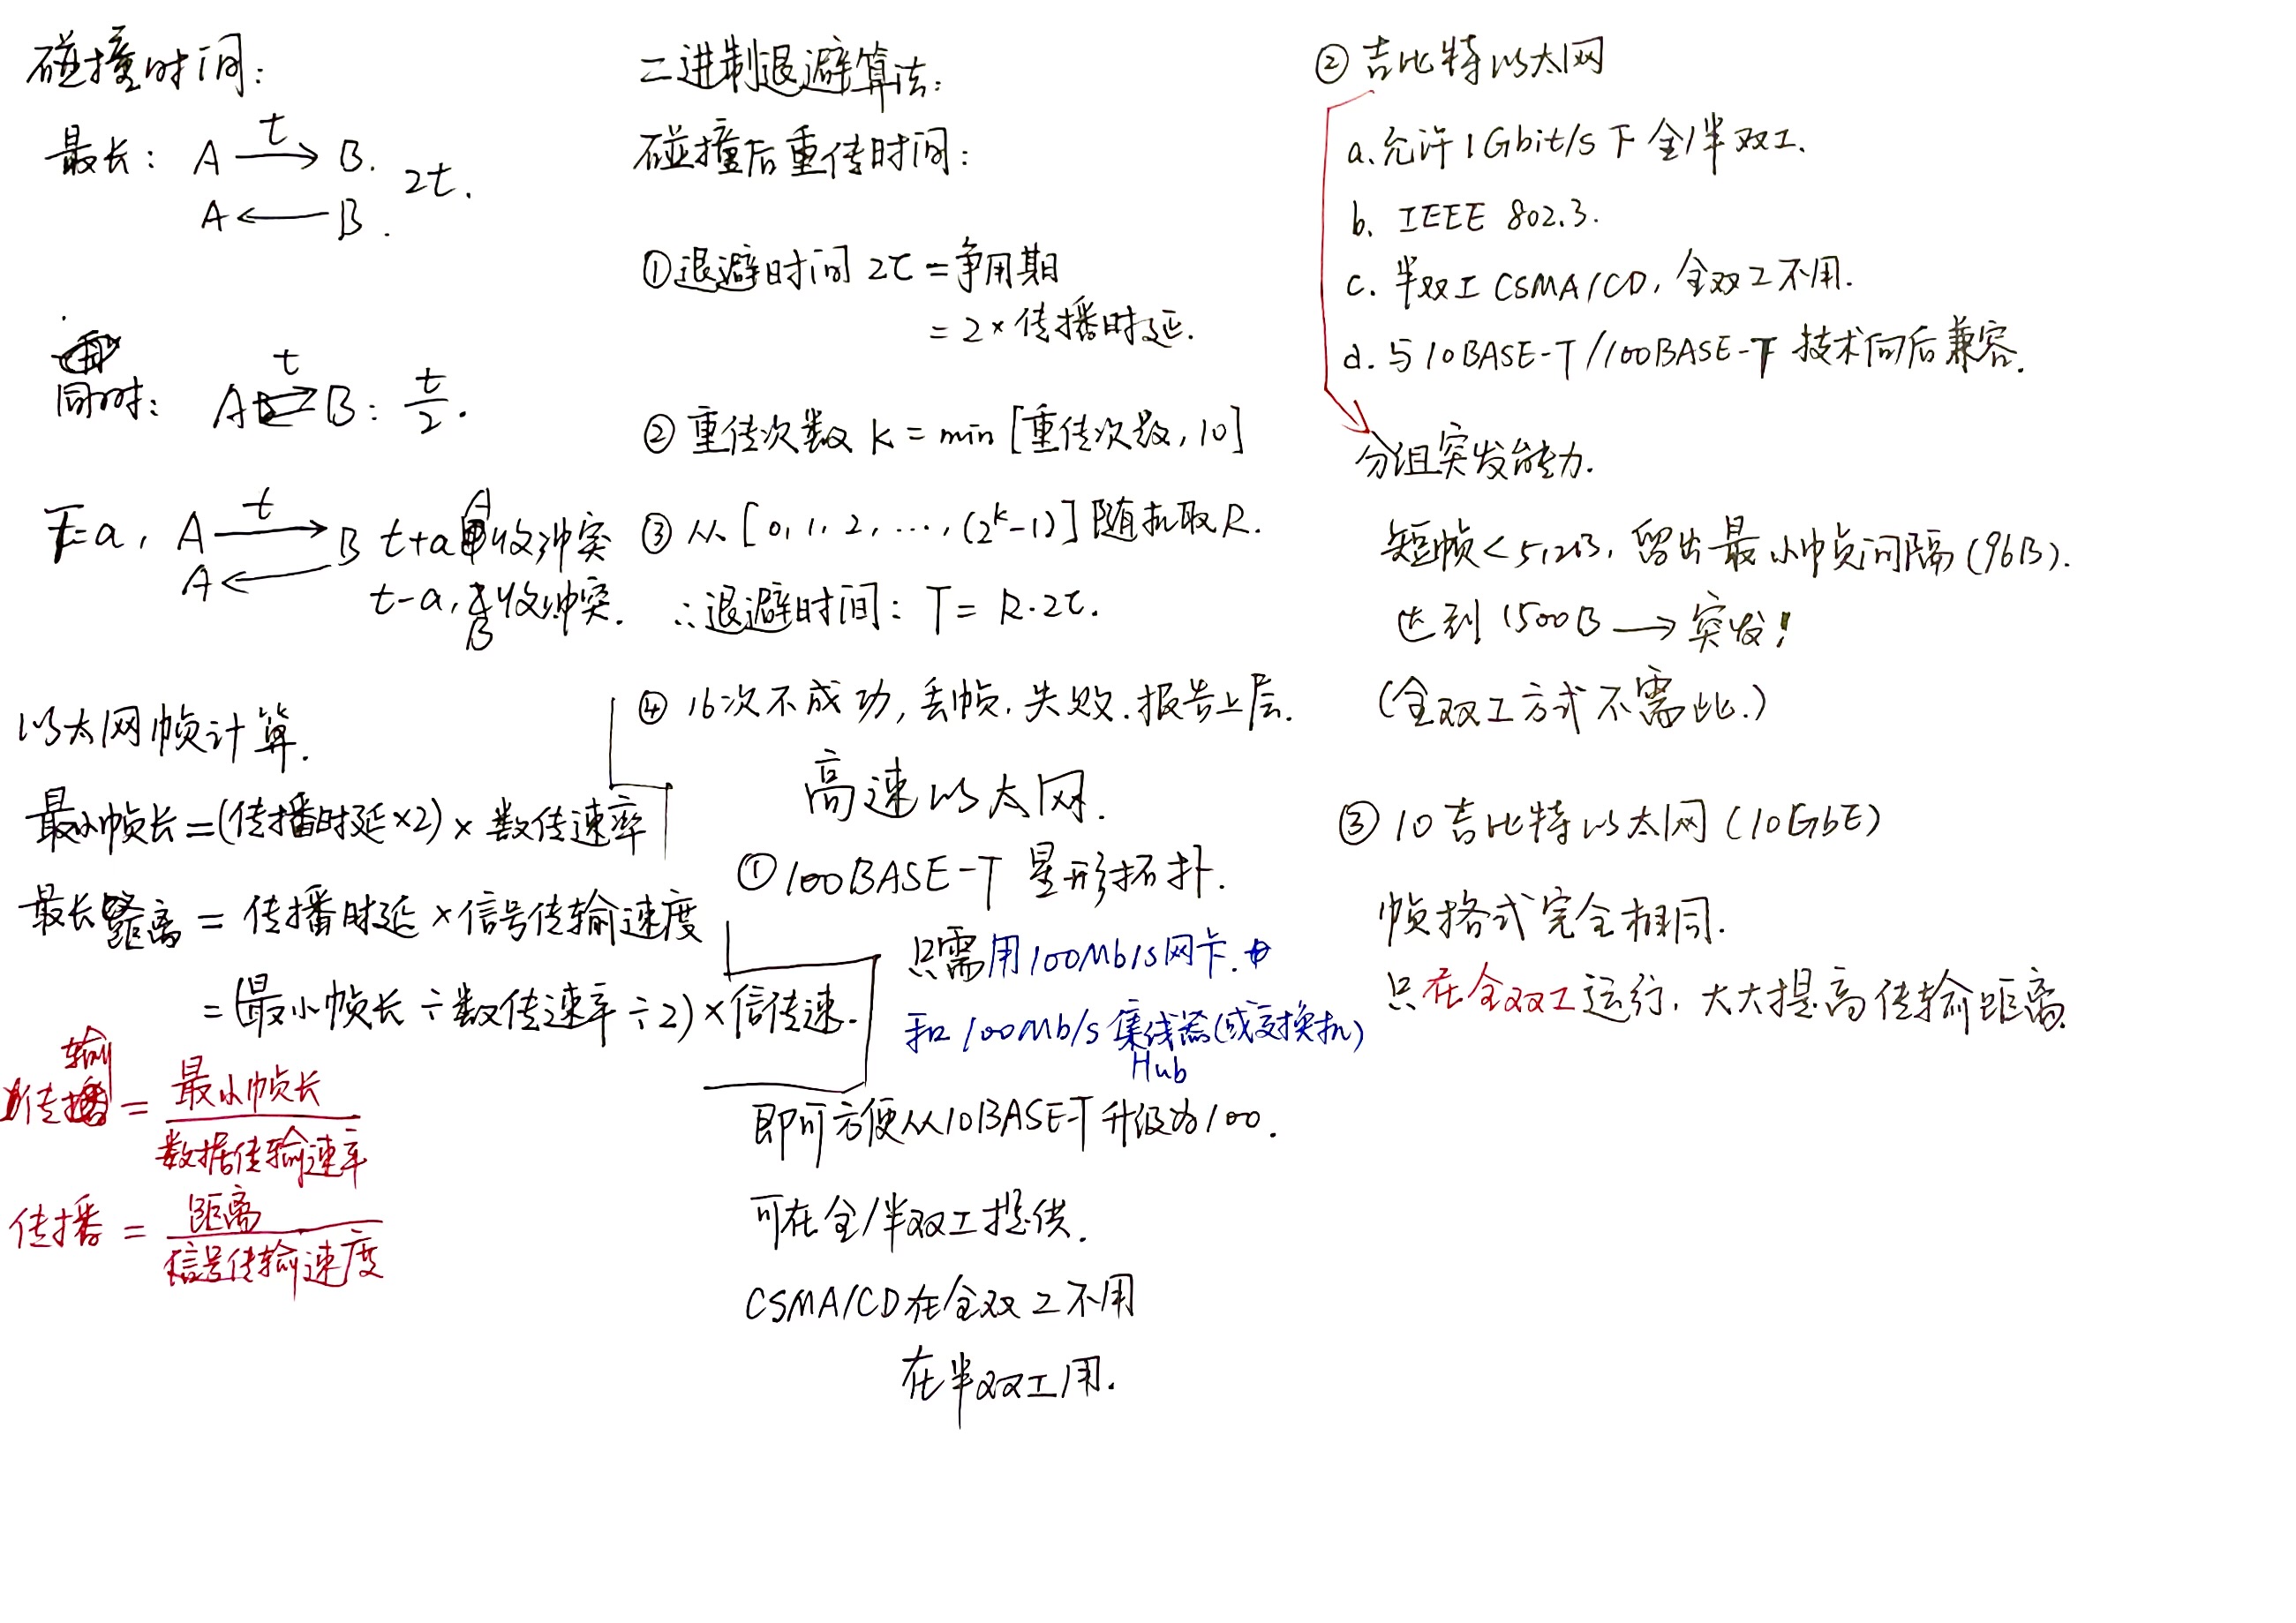 碰撞时间:
最长: A t→ B. 2t.
A ← B.
同时: A t⇄ B: t/2.
T=a, A t→ B t+a A收冲突
A ← t-a, B收冲突.
以太网帧计算.
最小帧长=(传播时延×2)×数传速率
最长距离 = 传播时延×信号传输速度
=(最小帧长÷数传速率÷2)×信传速.
传输 = 最小帧长/数据传输速率
传播 = 距离/信号传输速度
二进制退避算法:
碰撞后重传时间:
①退避时间 2τ = 争用期
= 2×传播时延.
② 重传次数 k = min [重传次数, 10]
③ 从 [0, 1, 2, …, (2^k-1)] 随机取R.
∴退避时间: T = R·2τ.
④ 16次不成功, 丢帧. 失败. 报告上层.
高速以太网.
①100BASE-T 星形拓扑.
只需用100Mb/s网卡.
和 100Mb/s 集线器(或交换机)
Hub
即可方便从10BASE-T升级为100.
可在全/半双工提供.
CSMA/CD在全双工不用
在半双工用.
② 吉比特以太网
a. 允许 1Gbit/s 下 全/半双工.
b. IEEE 802.3.
c. 半双工 CSMA/CD, 全双工不用.
d. 与10BASE-T/100BASE-T 技术向后兼容.
分组突发能力.
短帧<512B, 留出最小帧间隔(96B).
达到 1500B → 突发!
(全双工方式不需此.)
③ 10吉比特以太网 (10GbE)
帧格式完全相同.
只在全双工运行, 大大提高传输距离.